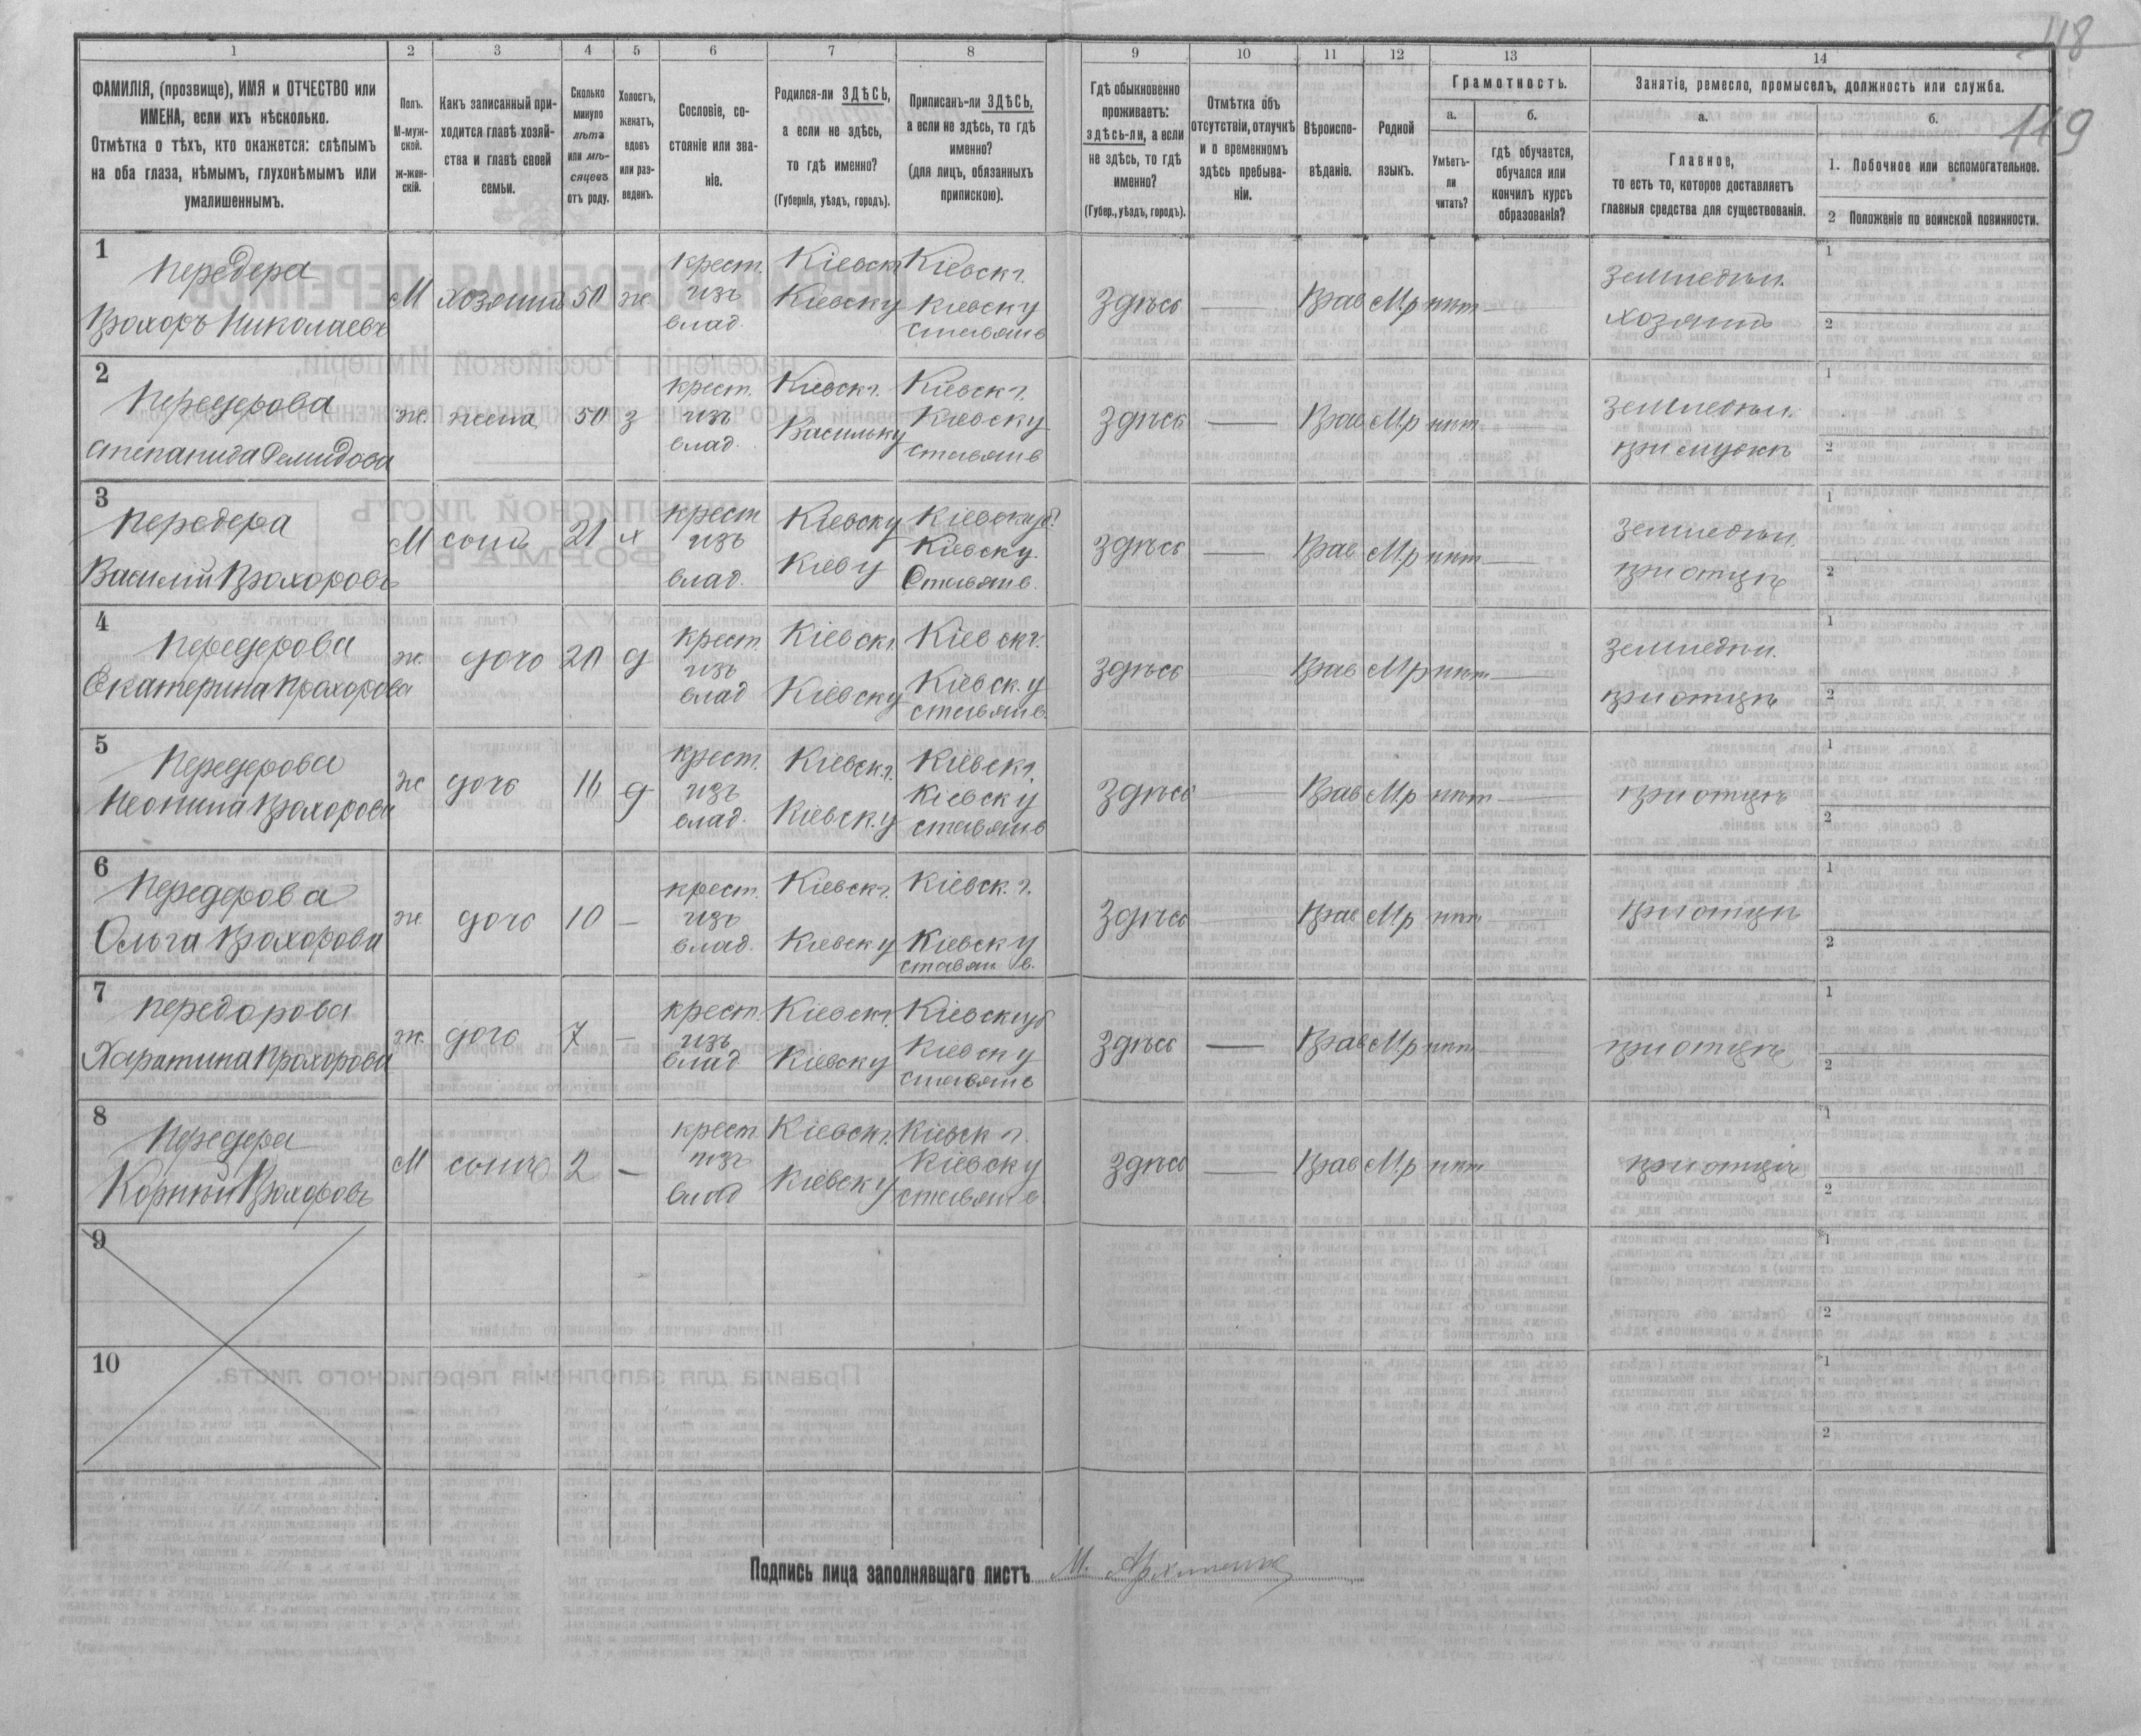 118
119
1 2 3 4 5 6 7 8 9 10 11 12 13 14
ФАМИЛІЯ, (прозвище), ИМЯ и ОТЧЕСТВО или ИМЕНА, если ихъ нѣсколько.
Отмѣтка о тѣхъ, кто окажется: слѣпымъ на оба глаза, нѣмымъ, глухонѣмымъ или умалишеннымъ.
Полъ. М-муж-ской. ж-жен-скій.
Какъ записанный при-ходится главѣ хозяй-ства и главѣ своей семьи.
Сколько минуло лѣтъ или мѣ-сяцевъ отъ роду.
Холостъ, женатъ, вдовъ или раз-веденъ.
Сословіе, со-стояніе или зва-ніе.
Родился-ли ЗДѢСЬ, а если не здѣсь, то гдѣ именно? (Губернія, уѣздъ, городъ).
Приписанъ-ли ЗДѢСЬ, а если не здѣсь, то гдѣ именно? (для лицъ, обязанныхъ припискою).
Гдѣ обыкновенно проживаетъ: здѣсь-ли, а если не здѣсь, то гдѣ именно? (Губер., уѣздъ, городъ).
Отмѣтка объ отсутствіи, отлучкѣ и о временномъ здѣсь пребыва-ніи.
Вѣроиспо-вѣданіе.
Родной языкъ.
Грамотность.
а. Умѣетъ-ли читать?
б. гдѣ обучается, обучался или кончилъ курсъ образованія?
Занятіе, ремесло, промыселъ, должность или служба.
а. Главное, то есть то, которое доставляетъ главныя средства для существованія.
б.
1. Побочное или вспомогательное.
2 Положеніе по воинской повинности.
1 Передера Прохоръ Николаевъ М хозяинъ 50 ж крест. изъ влад. Кіевск г. Кіевск у Кіевск г. Кіевск у Ставян в здѣсь — Прав М.р нѣт — земледѣл. хозяинъ 1 2
2 Передерова Степанида Демидова ж. жена 50 з крест. изъ влад. Кіевск г. Васильк у Кіевск г. Кіевск у Ставян в здѣсь — Прав М.р нѣт — земледѣл. при мужѣ 1 2
3 Передера Василій Прохоровъ М сынъ 21 х крест изъ влад. Кіевск у Кіев у Кіевск губ. Кіевск у. Ставян в. здѣсь — Прав М.р нѣт — земледѣл. при отцѣ 1 2
4 Передерова Екатерина Прохорова ж. дочь 20 д крест. изъ влад Кіевск г. Кіевск у Кіевск г. Кіевск. у Ставян в. здѣсь — Прав М.р нѣт — земледѣл. при отцѣ 1 2
5 Передерова Неонила Прохорова ж дочь 16 д крест. изъ влад. Кіевск г. Кіевск. у Кіевск г. Кіевск у Ставян в здѣсь — Прав М.р нѣт — при отцѣ 1 2
6 Передерова Ольга Прохорова ж. дочь 10 — крест. изъ влад. Кіевск г. Кіевск у Кіевск. г. Кіевск у Ставян в. здѣсь — Прав М.р нѣт — при отцѣ 1 2
7 Передорова Харитина Прохорова ж. дочь 7 — крест. изъ влад Кіевск г. Кіевск у Кіевск губ Кіевск у Ставян в здѣсь — Прав М.р нѣт — при отцѣ 1 2
8 Передера Корнѣй Прохоровъ М сынъ 2 — крест изъ влад Кіевск г. Кіевск у Кіевск г. Кіевск у Ставян в. здѣсь — Прав М.р нѣт при отцѣ 1 2
9 1 2
10 1 2
Подпись лица заполнявщаго листъ М.